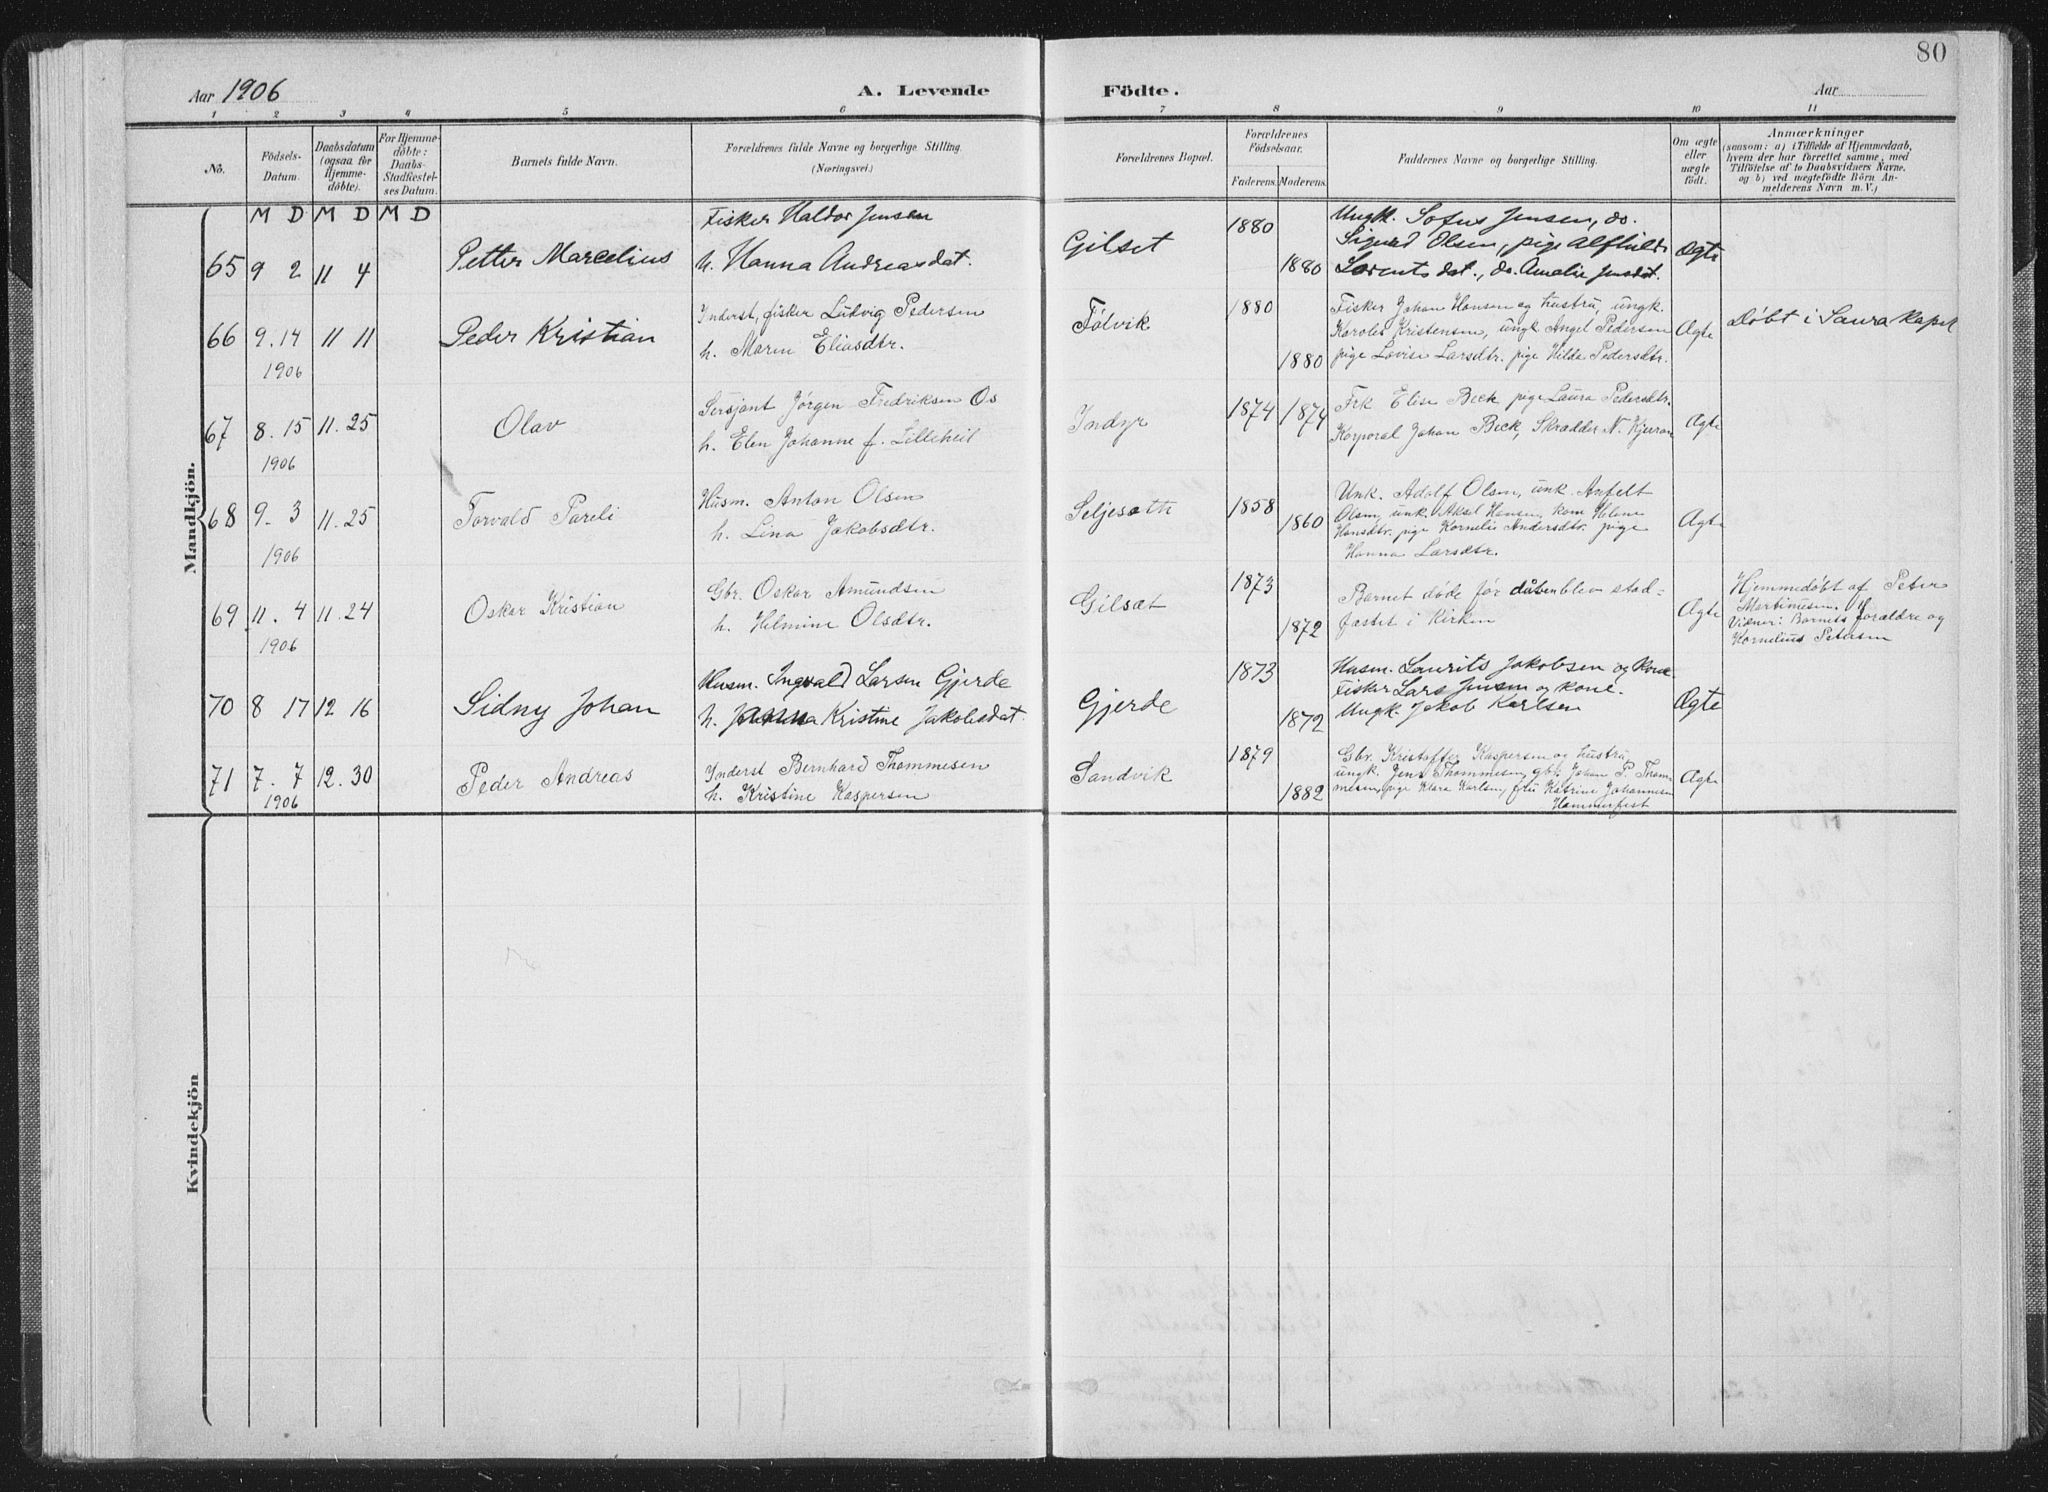 80
Aar 1906 A. Levende Födte. Aar
1 2 3 4 5 6 7 8 9 10 11
Nö.
Födsels-Datum.
Daabsdatum (ogsaa för Hjemme-döbte).
For Hjemme-döbte: Daabs-Stadfæstel-ses Datum.
Barnets fulde Navn.
Forældrenes fulde Navne og borgerlige Stilling. (Næringsvei.)
Forældrenes Bopæl.
Forældrenes Födselsaar.
Faderens. Moderens.
Faddernes Navne og borgerlige Stilling.
Om ægte eller uægte födt.
Anmærkninger
(saasom: a) i Tilfælde af Hjemmedaab,
hvem der har forrettet samme, med
Tilföielse af to Daabsvidners Navne,
og b) ved uægtefödte Börn An-
melderens Navn m.V.)
Mandkjön.
M D M D M D
65 9 2 11 4 Petter Marcelius
Fisker Haldor Jensen
h. Hanna Andreasdat.
Gilset 1880 1880
Ungk. Sofus Jensen, do.
Sigurd Olsen, pige Alfhild
Lorentsdat., do. Amalie Jensdat.
Ægte
66 9.14 1906 11 11 Peder Kristian
Inderst, fisker Ludvig Pedersen
h. Maren Eliasdtr.
Følvik 1880 1880
Fisker Johan Hansen og hustru, ungk.
Karoles Kristensen, ungk Angel Pedersen
pige Lovise Larsdtr. pige Hilda Pedersdtr.
Ægte
Døbt i Saura Kapel
67 8.15 1906 11.25 Olav
Sersjant Jørgen Fredriksen Os
h. Elen Johanne f. Lilleheil
Indyr 1874 1874
Frk Elise Beck pige Laura Pedersdtr.
Korporal Johan Beck, Skrædder N. Kjerran
Ægte
68 9.3 1906 11.25 Torvald Pareli
Husm. Anton Olsen
h. Lina Jakobsdtr.
Seljesæth 1858 1860
Unk. Adolf Olsen, unk. Anfelt
Olsen, unk. Aksel Hansen, kone Helene
Hansdtr. pige Kornelie Andersdtr. pige
Hanna Larsdtr.
Ægte
69 11.4 1906 11.24 Oskar Kristian
Gbr. Oskar Amundsen
h. Helmine Olsdtr.
Gilsæt 1873 1872
Barnet døde før dåben blev stad-
fæstet i Kirken
Ægte
Hjemmedøbt af Peter
Martinusen.
Vidner: Barnets forældre og
Kornelius Petersen
70 8 17 12 16 Sidny Johan
Husm. Ingvald Larsen Gjerde
h. Kristine Jakobsdat.
Gjerde 1873 1872
Husm. Laurits Jakobsen og Kone
Fisker Lars Jensen og kone.
Ungk. Jakob Karlsen
Ægte
71 7.7 1906 12.30 Peder Andreas
Inderst Bernhard Thommesen
h. Kristine Kaspersen
Sandvik 1879 1882
Gbr. Kristoffer Kaspersen og hustru
ungk. Jens Thommesen, gbr. Johan P. Thom-
mesen, pige Klara Karlsen, fru Katrine Johannesen
Hammerfest
Ægte
Kvindekjön